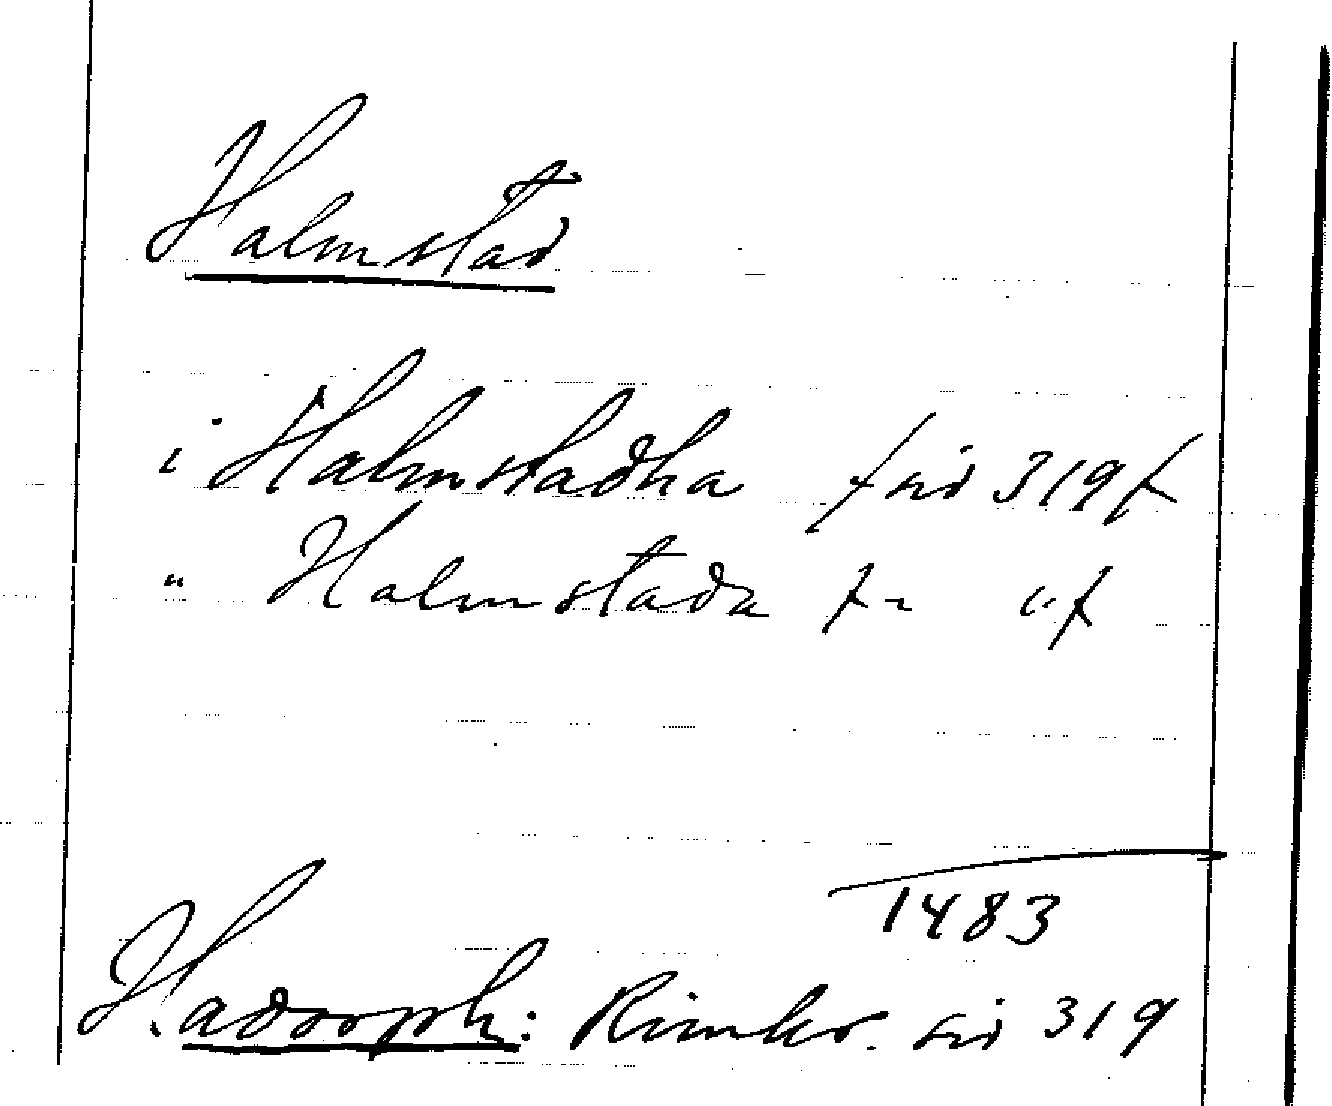 Halmstad
i Halmstadha / sid 319 /
" Halmstada / - " /
1483
Hadorph: Rimkr. sid 319